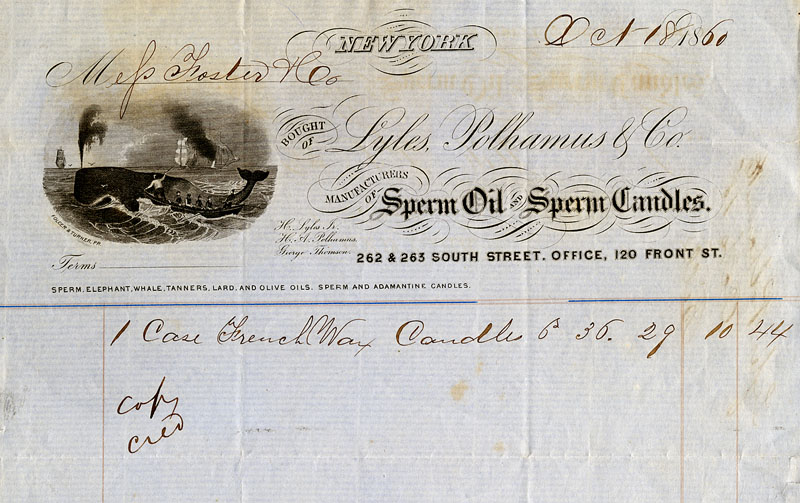 NEW YORK Oct 18 1860
Mess Foster & Co
BOUGHT OF Lyles, Polhamus & Co.
MANUFACTURERS OF Sperm Oil AND Sperm Candles.
H. Lyles Jr.
H. A. Polhamus.
George Thomson.
262 & 263 SOUTH STREET. OFFICE, 120 FRONT ST.
Terms
SPERM, ELEPHANT, WHALE, TANNERS, LARD, AND OLIVE OILS. SPERM AND ADAMANTINE CANDLES.
1 Case French Wax Candles 6s 36. 29 10 44
copy
cred